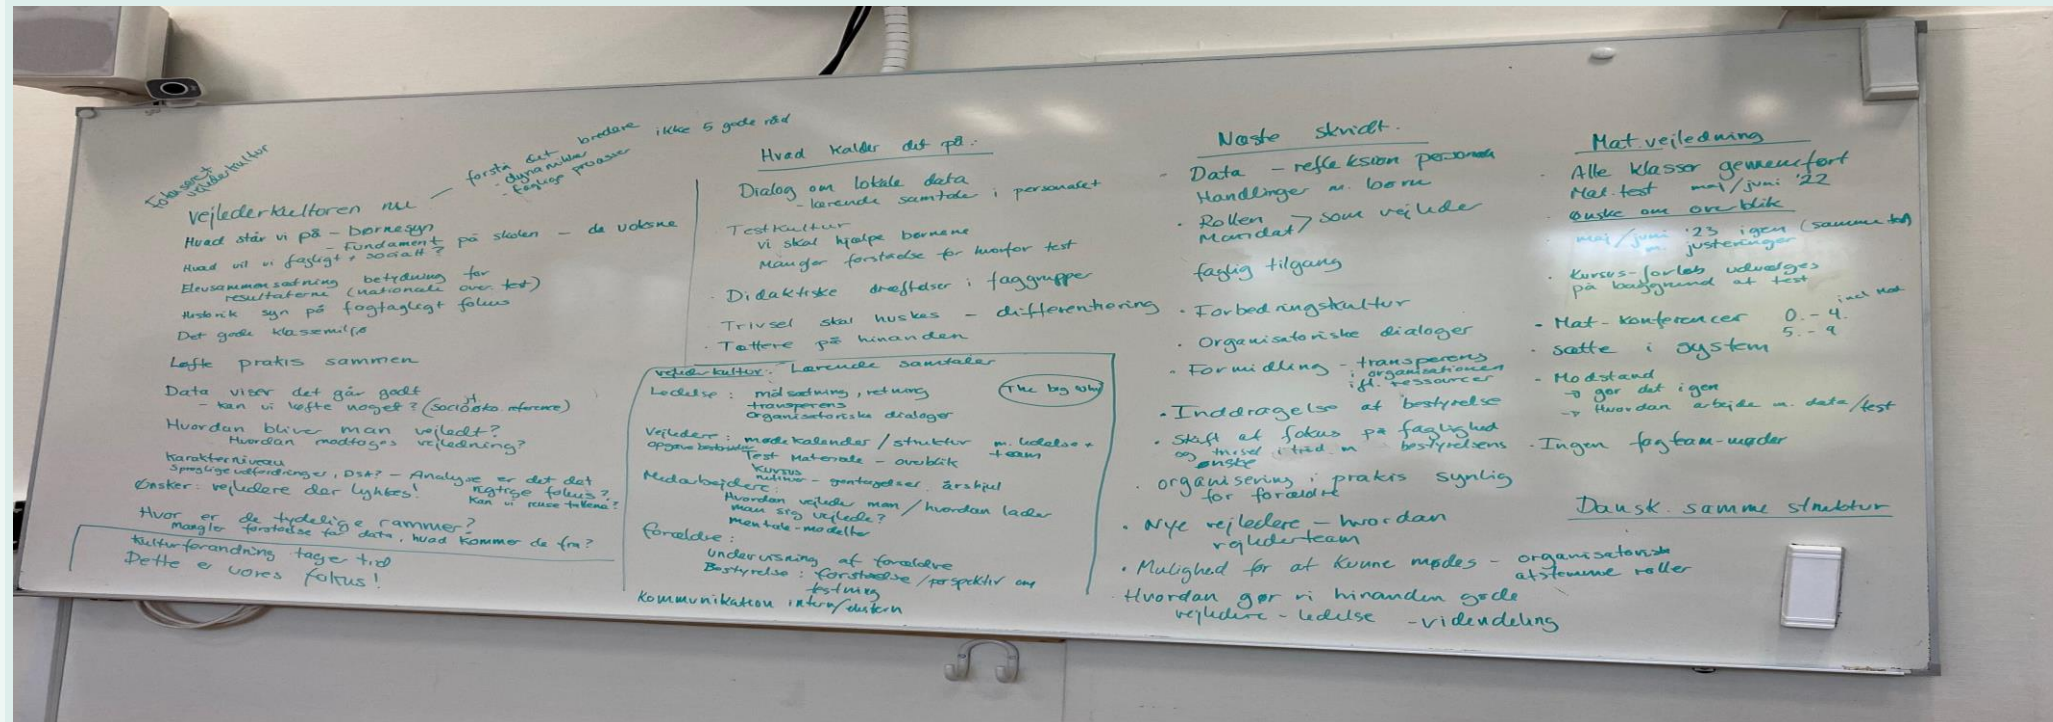 Fokuseret
vejlederkultur
forstå det bredere ikke 5 gode råd
- dynamikker
- faglige processer
Vejlederkulturen nu —
Hvad står vi på - børnesyn
- Fundament på skolen - de voksne
Hvad vil vi fagligt + socialt?
Elevsammensætning betydning for
resultaterne (nationale over. test)
Historik syn på fagfagligt fokus
Det gode klassemiljø
Løfte praksis sammen
Data viser det går godt
- kan vi løfte noget? (socioøko. reference)
Hvordan bliver man vejledt?
Hvordan modtages vejledning?
Karakterniveau
Sproglige udfordringer, DSA? - Analyse er det det
rigtige fokus?
Ønsker: vejledere der lykkes! Kan vi tallene?
Hvor er de tydelige rammer?
Mangler forståelse for data, hvad kommer de fra?
Kulturforandring tager tid
Dette er vores fokus!
Hvad kalder det på:
Dialog om lokale data
- lærende samtale i personalet
Testkultur
vi skal hjælpe børnene
Mangler forståelse for hvorfor test
· Didaktiske drøftelser i faggrupper
· Trivsel skal huskes - differentiering
· Tættere på hinanden
Vejlederkultur: Lærende samtaler
Ledelse: målsætning, retning The big why
transparens
organisatoriske dialoger
Vejledere: mødekalender / struktur m. ledelse +
team
opgave
Test Materiale - overblik
Kursus
rutiner - gentagelser årshjul
Medarbejdere:
Hvordan vejleder man / hvordan lader
man sig vejlede?
mentale-modeller
Forældre:
Undervisning af forældre
Bestyrelse: forståelse / perspektiv om
testning
Kommunikation intern/ekstern
Næste skridt.
· Data - refleksion personale
Handlinger m. børn
· Rollen > som vejleder
Mandat
faglig tilgang
· Forbedringskultur
· Organisatoriske dialoger
· Formidling - transparens
i organisationen
ift. ressourcer
· Inddragelse af bestyrelse
· Skift af fokus på faglighed
og trivsel i tråd m bestyrelsens
ønske
· organisering i praksis synlig
for forældre
· Nye vejledere - hvordan
vejlederteam
· Mulighed for at kunne mødes - organisatorisk
afstemme roller
· Hvordan gør vi hinanden gode
vejledere - ledelse - videndeling
Mat.vejledning
· Alle klasser gennemført
Mat.test maj/juni '22
· ønske om overblik
· maj/juni '23 igen (samme test)
m. justeringer
· Kursus-forløb udvælges
på baggrund af test
· Mat-konferencer 0. - 4. incl
5. - 9
· sætte i system
· Modstand
→ gør det igen
→ Hvordan arbejde m. data/test
· Ingen fagteam-møder
Dansk. samme struktur